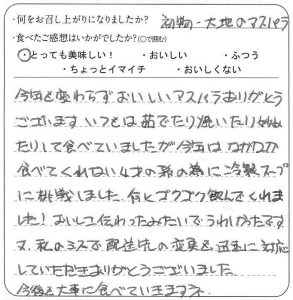 ・何をお召し上がりになりましたか？ 初物・大地のアスパラ
・食べたご感想はいかがでしたか？(○で囲む)
・とっても美味しい！ ・おいしい ・ふつう
・ちょっとイマイチ ・おいしくない
今年も変わらずおいしいアスパラありがとう
ございます いつもは茹でたり焼いたり炒め
たりして食べていましたが今年はなかなか
食べてくれない4才の孫の為に冷製スープ
に挑戦しました。何とゴクゴク飲んでくれま
した！おいしさ伝わったみたいでうれしかったです
又、私のミスで配送先の変更も迅速に対応
していただきありがとうございました
今後も大事に食べていきますネ